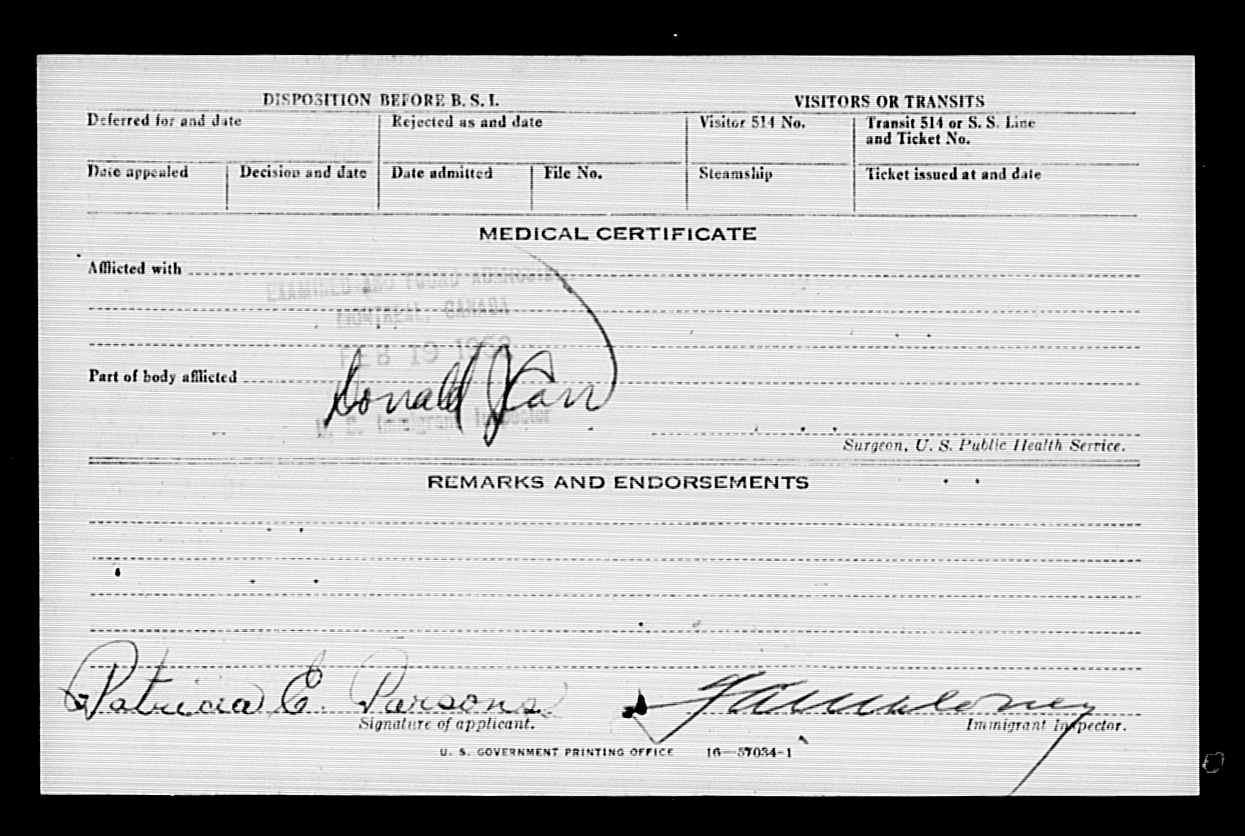 DISPOSITION BEFORE B. S. I. VISITORS OR TRANSITS
Deferred for and date Rejected as and date Visitor 514 No. Transit 514 or S. S. Line
and Ticket No.
Date appealed Decision and date Date admitted File No. Steamship Ticket issued at and date
MEDICAL CERTIFICATE
Afflicted with
EXAMINED AND FOUND ADMISSIBLE
MONTREAL, CANADA
FEB 19
Part of body afflicted
Donald
U. S. Immigrant Inspector
Surgeon, U. S. Public Health Service.
REMARKS AND ENDORSEMENTS
Patricia E. Parsons
Signature of applicant.
Immigrant Inspector.
U. S. GOVERNMENT PRINTING OFFICE 16—57034-1